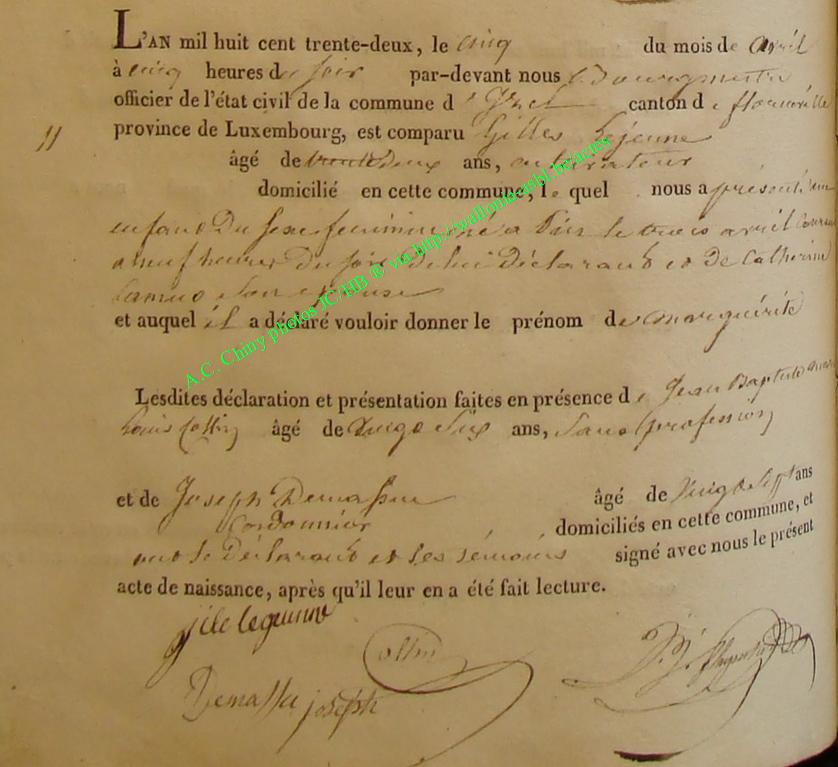 L'AN mil huit cent trente-deux, le cinq du mois de avril
à cinq heures du soir par-devant nous Bourgmestre
officier de l'état civil de la commune d' Izel canton de florenville
11 province de Luxembourg, est comparu Gilles Lejeune
âgé de trente deux ans, cultivateur
domicilié en cette commune, le quel nous a présenté un
enfant du sexe feminin né a le trois avril courant
a neuf heures du soir de lui déclarant et de Catherine
Camus son epouse
et auquel il a déclaré vouloir donner le prénom de marguérite
Lesdites déclaration et présentation faites en présence de Jean Baptiste
Louis Collin âgé de vingt six ans, sans profession
et de Joseph Demasson âgé de vingt sept ans
Cordonnier domiciliés en cette commune, et
ont le déclarant et les témoins signé avec nous le présent
acte de naissance, après qu'il leur en a été fait lecture.
jile lequnne
Collin
Demasse joseph
A.C. Chiny photos IC/HB ® via http://wallonia.asbl.be/actes